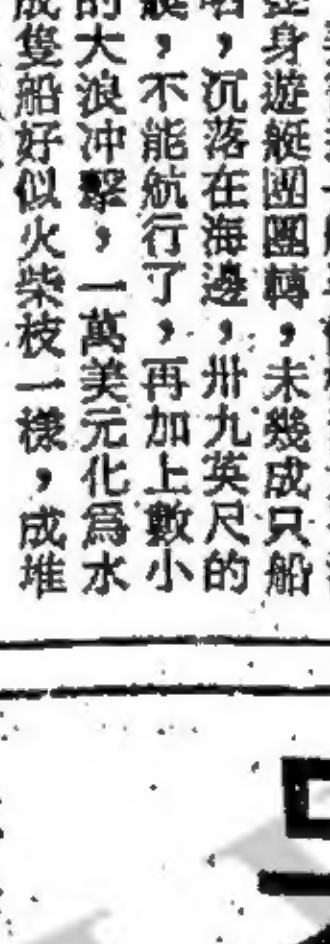 身遊艇團團轉，未幾成只船
，沉落在海邊，卅九英尺的
艇，不能航行了，再加上數小
的大浪冲擊，一萬美元化爲水
成隻船好似火柴枝一樣，成堆